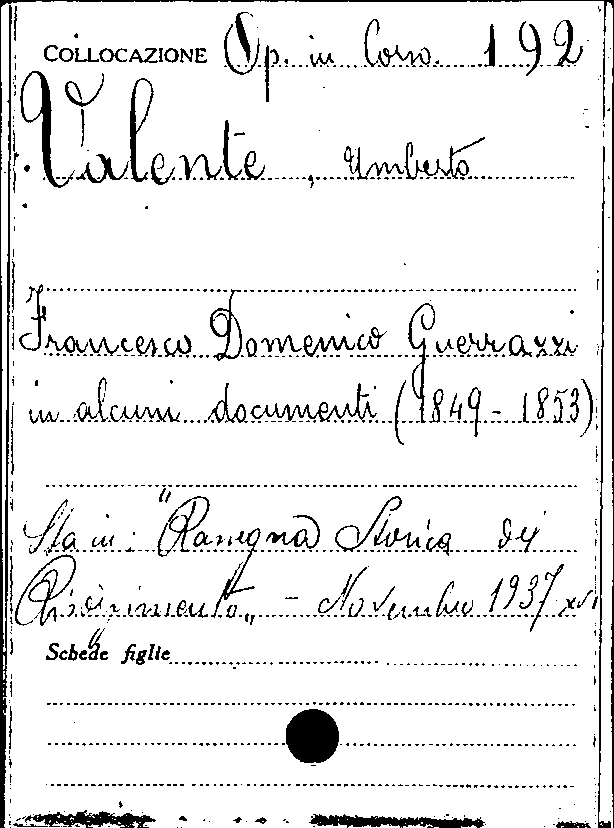 COLLOCAZIONE Op. in Corso. 192
Valente, Umberto
Francesco Domenico Guerrazzi
in alcuni documenti (1849-1853)
Sta in: "Rassegna Storica del
Risorgimento„ - Novembre 1937 XVI
Schede figlie